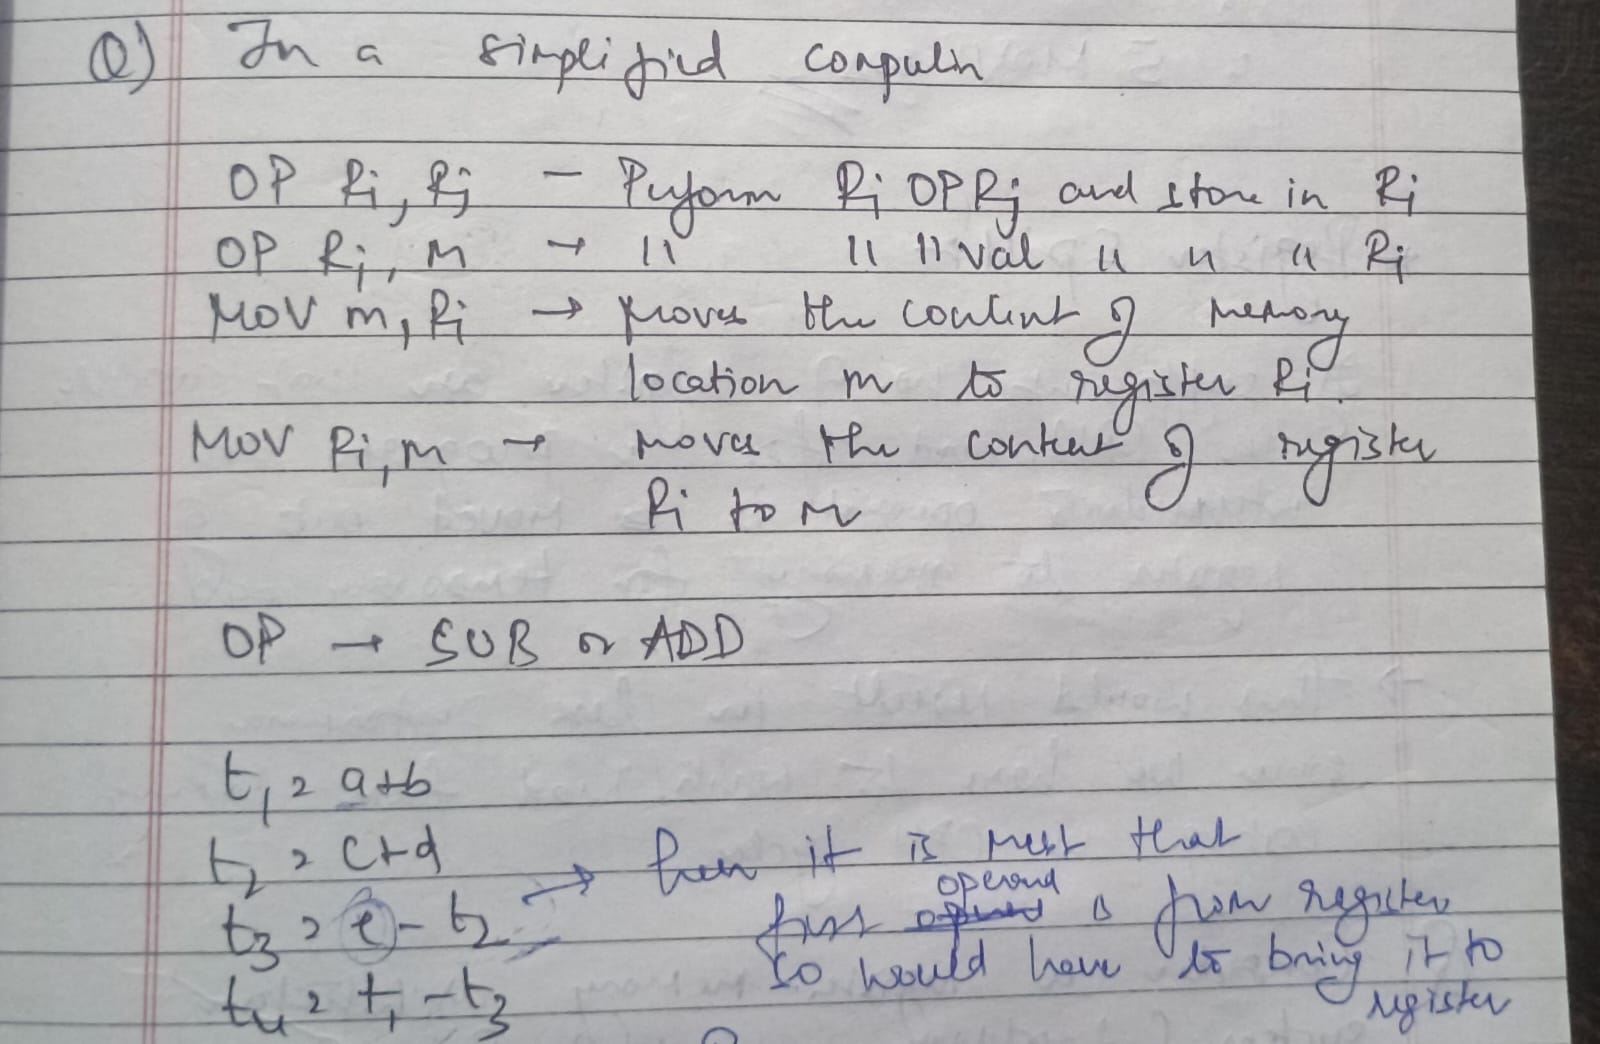 Q) In a simplified
OP Ri, Rj - Perform Rj OP Rj and store in Ri
OP Ri, M → " " " val " " " Ri
MOV m, Ri → moves the content of memory
location m to register Ri.
MOV Ri, m → moves the content of register
Ri to m
OP → SUB or ADD
t1 = a+b
t2 = c+d
t3 = e - t2 → here it is must that
first operand is from register
so would have to bring it to
register
t4 = t1 - t3